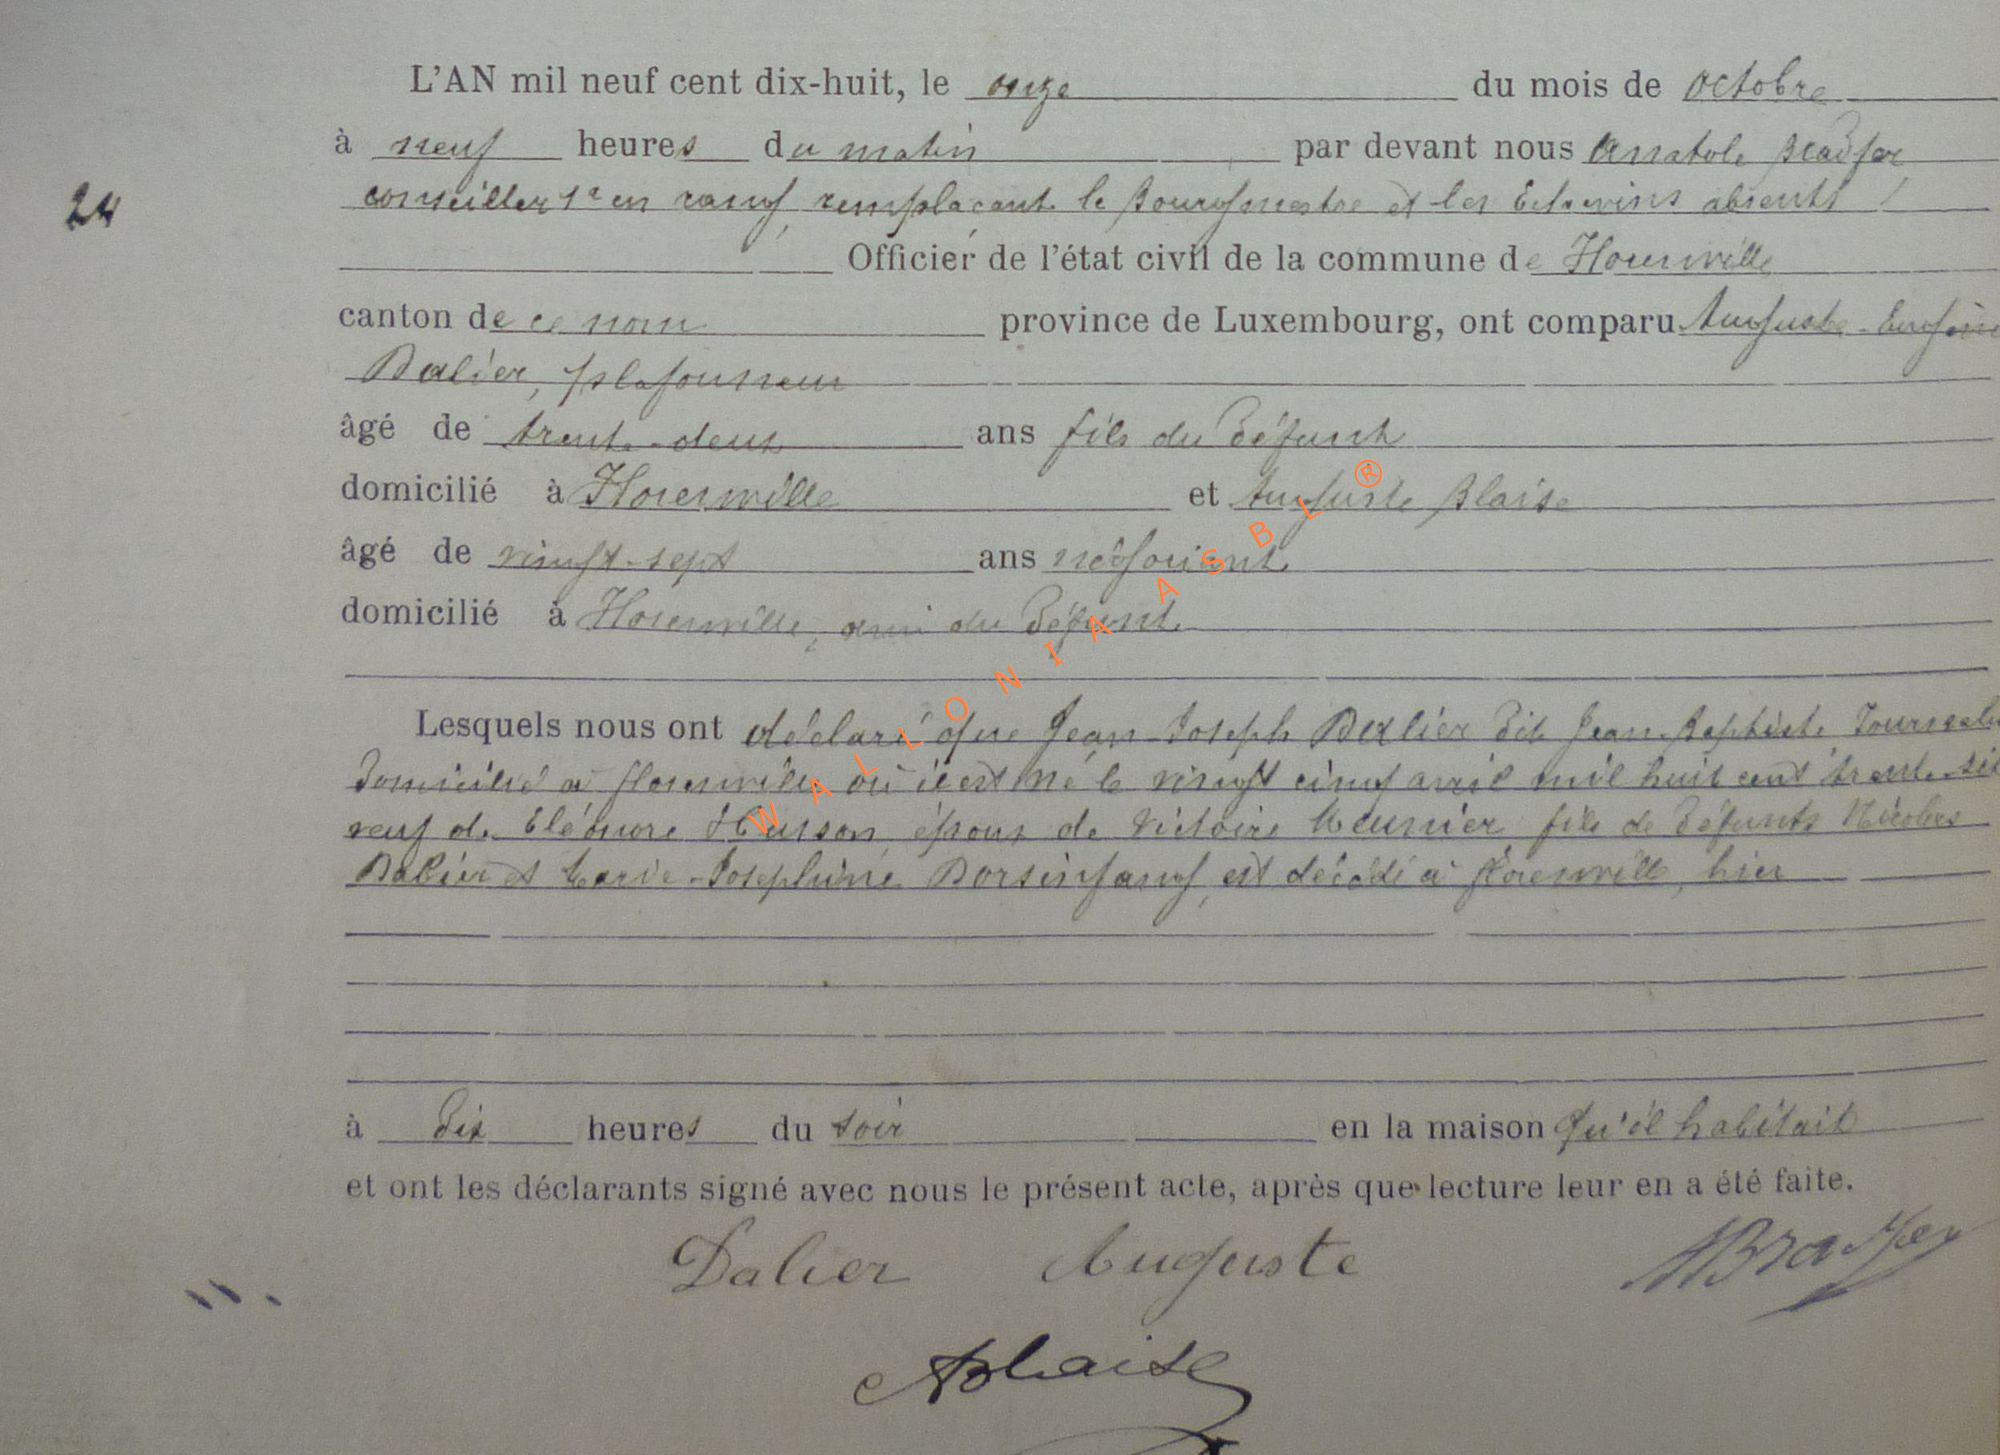 L'AN mil neuf cent dix-huit, le onze du mois de octobre
à neuf heures du matin par devant nous Anatole
24
conseiller 1r en rang, remplaçant le Bourgmestre et les Echevins absents
Officier de l'état civil de la commune de Florenville
canton de ce nom province de Luxembourg, ont comparu Auguste-Eugène
Dalier, plafonneur
âgé de trente-deux ans fils du défunt
domicilié à Florenville et Auguste Blaise
âgé de vingt-sept ans négociant
domicilié à Florenville, ami du défunt
Lesquels nous ont déclaré que Jean-Joseph Dalier dit Jean-Baptiste
domicilié à Florenville où il est né le vingt cinq avril mil huit cent trente-six
veuf de Eléonore Husson, époux de Victoire Meunier, fils de défunts Nicolas
Dalier et Marie-Josephine Dorsinfang, est décédé à Florenville, hier
à dix heures du soir en la maison qu'il habitait
et ont les déclarants signé avec nous le présent acte, après que lecture leur en a été faite.
Dalier Auguste
ABlaise
WALLONIA ASBL ®